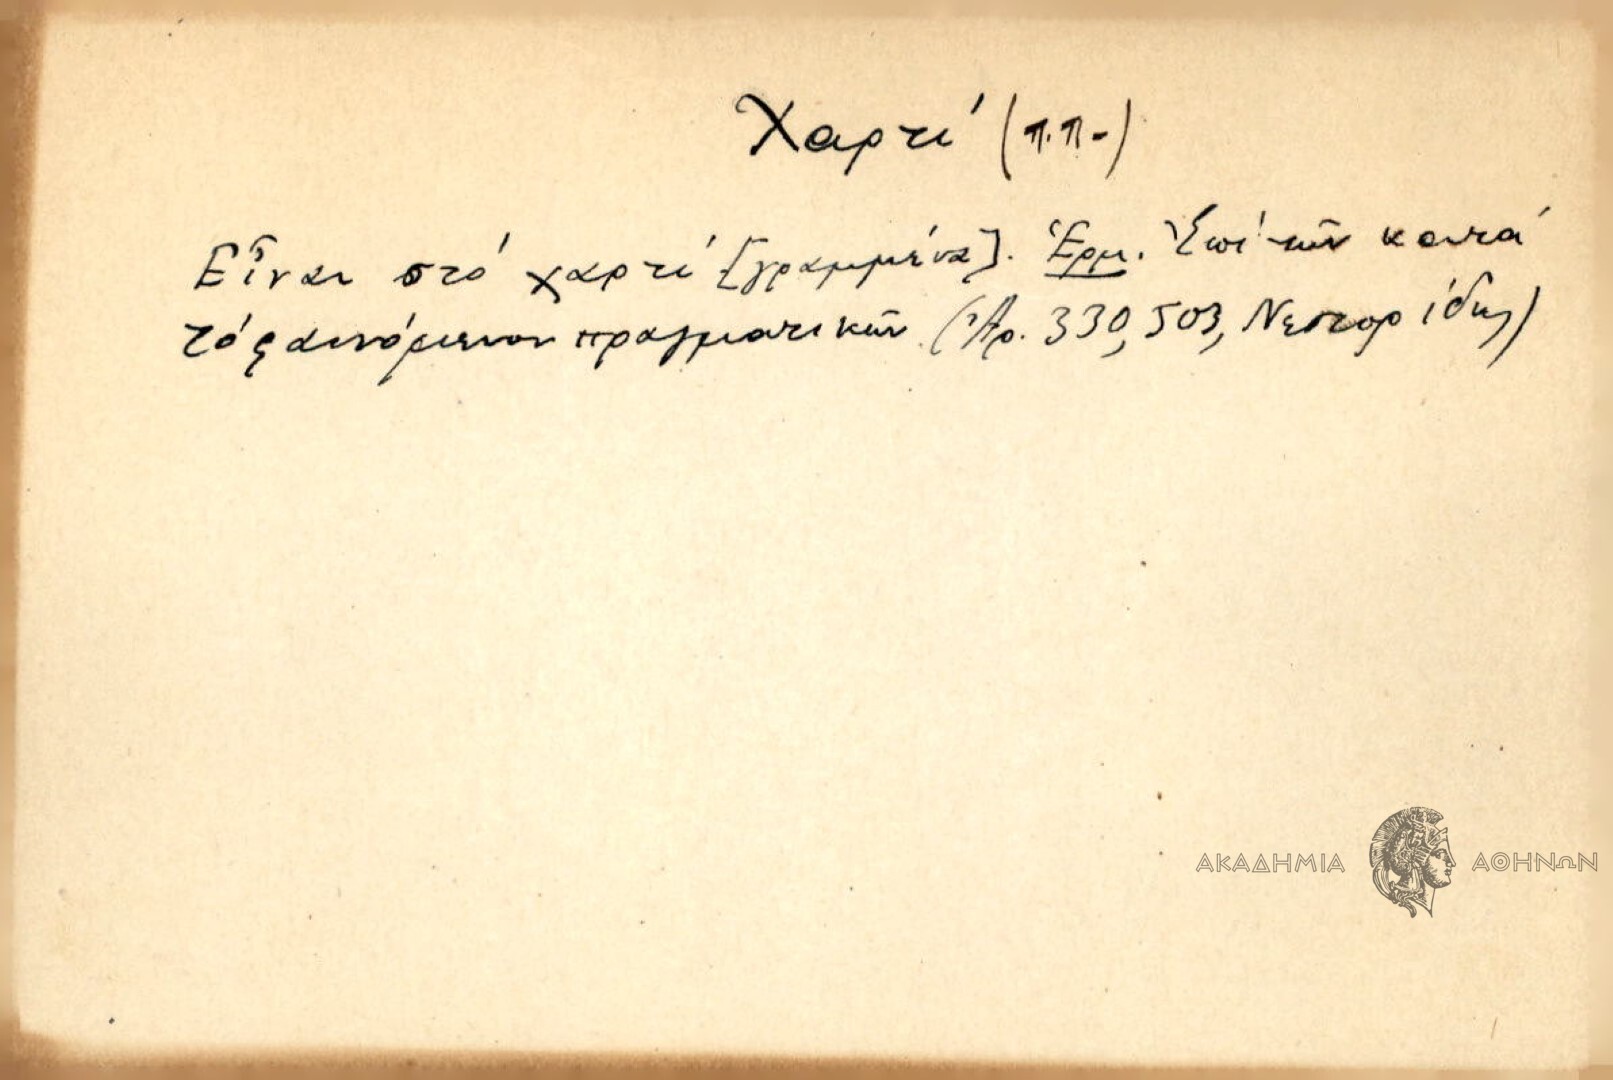 Χαρτί (π.π-)
Εἶναι στό χαρτί [γραμμένα]. Ἑρμ. Ἐπί τῶν κατά
τό φαινόμενον πραγματικῶν (Ἀρ. 330, 503, Νεστορίδης)
ΑΚΑΔΗΜΙΑ ΑΘΗΝΩΝ